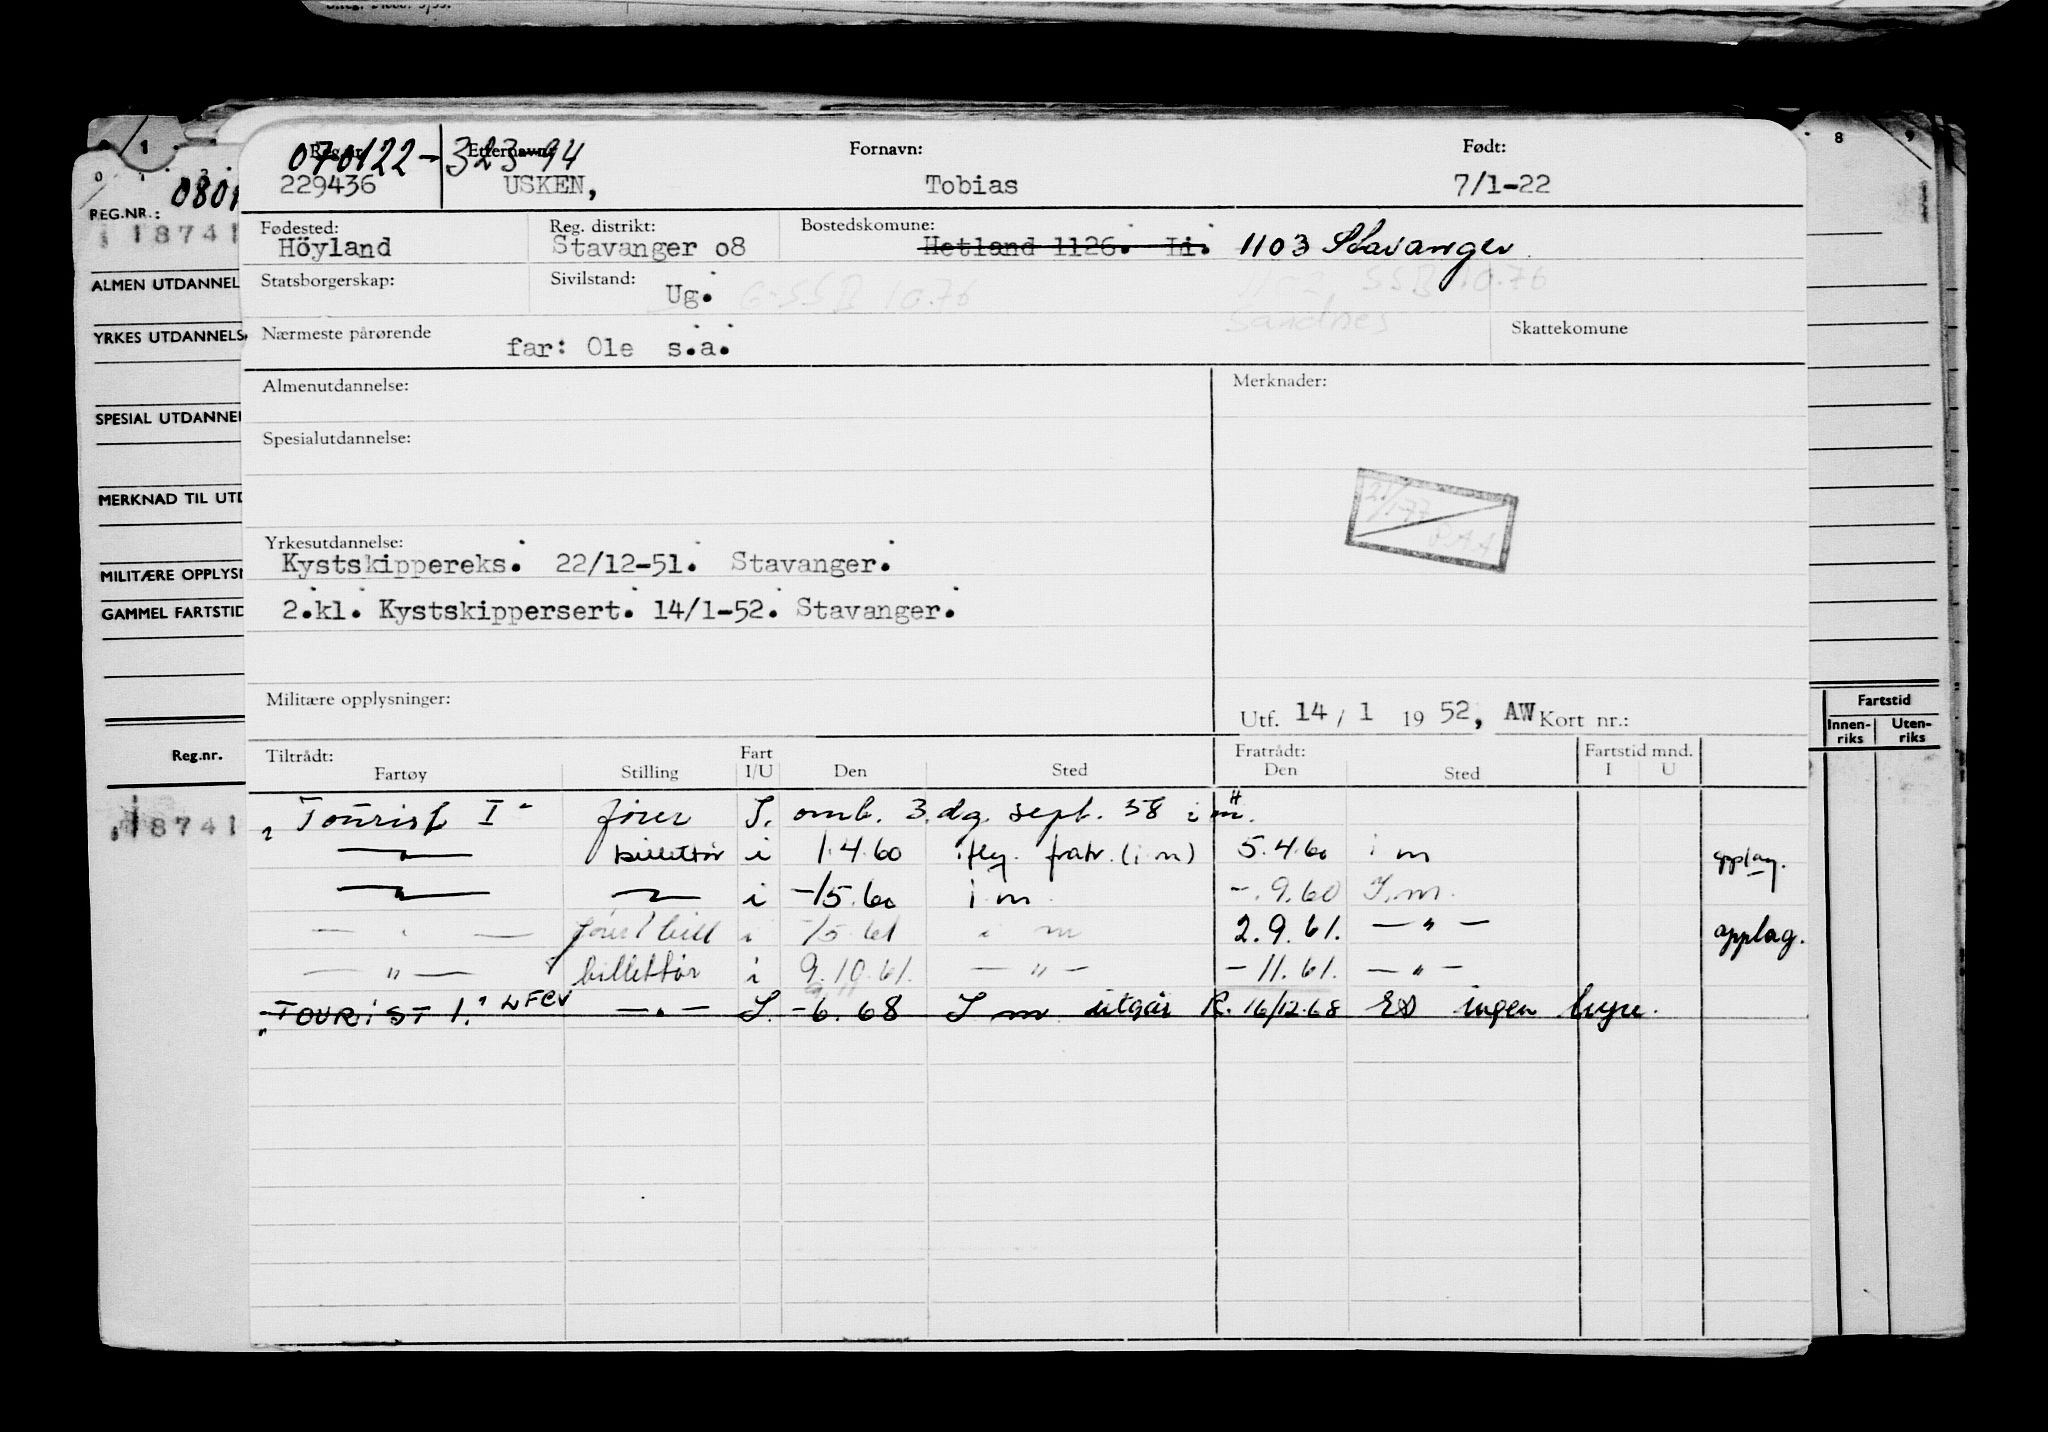 0 1 8 9
0801
REG.NR.:
18741
ALMEN UTDANNEL
YRKES UTDANNELS
SPESIAL UTDANNEL
MERKNAD TIL UTD
MILITÆRE OPPLYSN
GAMMEL FARTSTID
Reg.nr.
18741
Fartstid
Innen-riks Uten-riks
Reg.nr. Etternavn: Fornavn: Født:
070122-32394
229436 USKEN, Tobias 7/1-22
Fødested: Reg. distrikt: Bostedskomune:
Höyland Stavanger o8 Hetland 1126. Li. 1103 Stavanger
Statsborgerskap: Sivilstand: Ug. G-SSB 10.76 SSB 10.76
Sandnes
Nærmeste pårørende Skattekomune
far: Ole s.a.
Almenutdannelse: Merknader:
Spesialutdannelse:
21/1-77
Yrkesutdannelse:
Kystskippereks. 22/12-51. Stavanger.
2.kl. Kystskippersert. 14/1-52. Stavanger.
Militære opplysninger:
Utf. 14 / 1 19 52, AW Kort nr.:
Tiltrådt: Fart Fratrådt: Fartstid mnd.
Fartøy Stilling I/U Den Sted Den Sted I U
"Tourist I" fører I. omb. 3.dg. sept. 58 i m H.
— " — billettør i 1.4.60 fratr. (i m) 5.4.60 i m opplag.
— " — — " — i -/5.60 i m -.9.60 I.m.
— " — fører/bill i -/5.61 i m 2.9.61. — " — opplag.
— " — billettør i 9.10.61. — " — -11.61. — " —
"TOURIST I." LFCV — " — I. -6.68 I m utgår R. 16/12.68 ingen hyre.